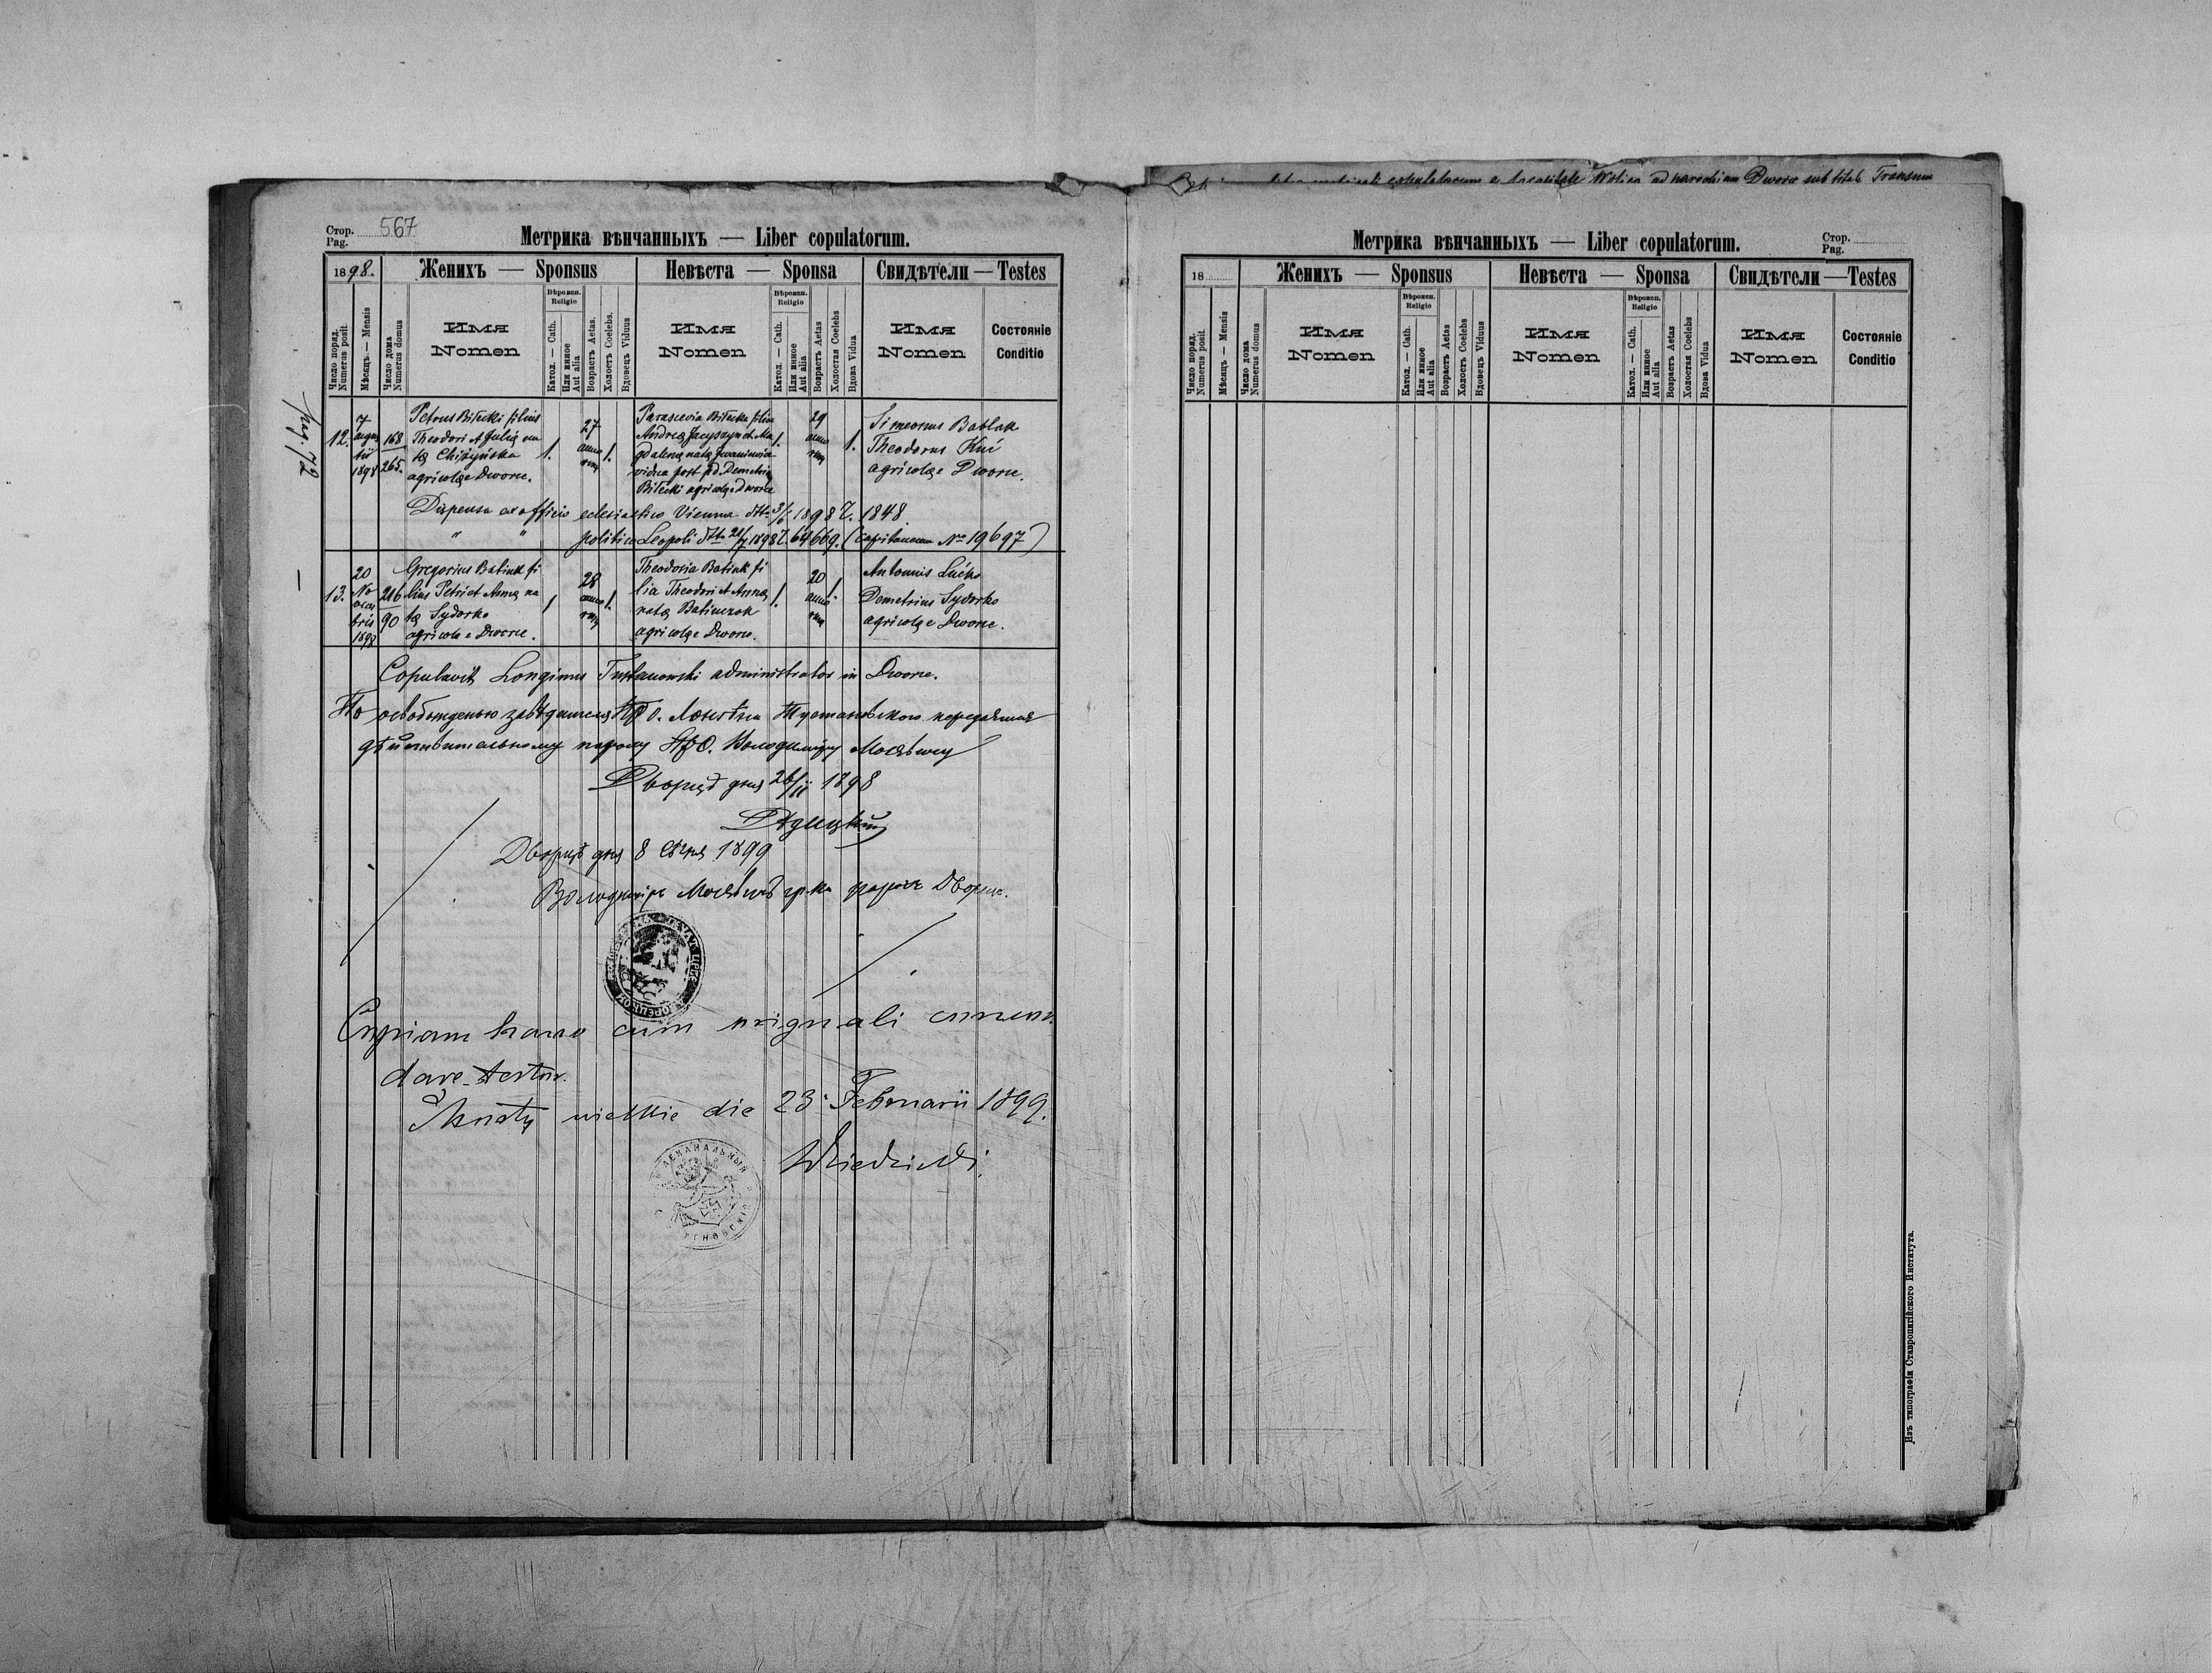 Стор.
Pag. 567
Метрика вѣнчанныхъ — Liber copulatorum.
1898.
Женихъ — Sponsus
Невѣста — Sponsa
Свидѣтели — Testes
Число поряд.
Numerus posit.
Мѣсяцъ. — Mensis
Число дома
Numerus domus
Имя
Nomen
Вѣроисп.
Religio
Катол. — Cath.
Или инное
Aut alia
Возрастъ Aetas.
Холостъ Coelebs.
Вдовецъ Viduus
Имя
Nomen
Вѣроисп.
Religio
Катол. — Cath.
Или инное
Aut alia
Возрастъ Aetas
Холостая Coelebs
Вдова Vidua
Имя
Nomen
Состояніе
Conditio
12.
7
augus
tii
1898
168
265.
Petrus Bilecki filius
Theodori et Julię na
tę Chiżyńska
agricolę e Dworce.
1.
27
anno
rum
1.
Parascevia Bilecka filia
Andreę Jacyszyn et Ma
gdalenę natę Iwaniuvia
vidua post p.d. Demetrię
Bilecki agricolę e Dworce
1.
29
anno
rum
1.
Simeonus Bablak
Theodorus Kuś
agricolę e Dworce.
Dispensa ex officio eclesiastico Vienna dtto 3/6 1898 Z. 1848.
" " politico Leopoli dtto 21/7 1898 Z. 64669. (Capitaneum No 19697)
13.
20
No
vem
bris
1898
216
90
Gregorius Batiuk fi
lius Petri et Annę na
tę Sydorko
agricola e Dworce.
1
28
anno
rum
1.
Theodosia Batiuk fi
lia Theodori et Annę
natę Batiuczok
agricolę e Dworce.
1.
20
anno
rum
1.
Antonius Lućko
Demetrius Sydorko
agricolę e Dworce.
Copulavit Longinus Tustanowski administrator in Dworce.
дѣйствительному пароху Вcч. О. Володиміру
Дворцѣ дня 26/11 1898
Дѣдицкій
Дворцѣ дня 8 Сѣчня 1899
Copiam hanc cum originali concor
dare testor.
Mosty wielkie die 23 Februarii 1899.
ДЕКАНАЛЬНЫЙ
Метрика вѣнчанныхъ — Liber copulatorum.
Стор.
Pag.
18
Женихъ — Sponsus
Невѣста — Sponsa
Свидѣтели — Testes
Число поряд.
Numerus posit.
Мѣсяцъ — Mensis
Число дома
Numerus domus
Имя
Nomen
Вѣроисп.
Religio
Катол. — Cath.
Или инное
Aut alia
Возрастъ Aetas
Холостъ Coelebs
Вдовецъ Viduus
Имя
Nomen
Вѣроисп.
Religio
Катол. — Cath.
Или инное
Aut alia
Возрастъ Aetas
Холостая Coelebs
Вдова Vidua
Имя
Nomen
Состояніе
Conditio
Изъ типографіи Ставропигійского Института.